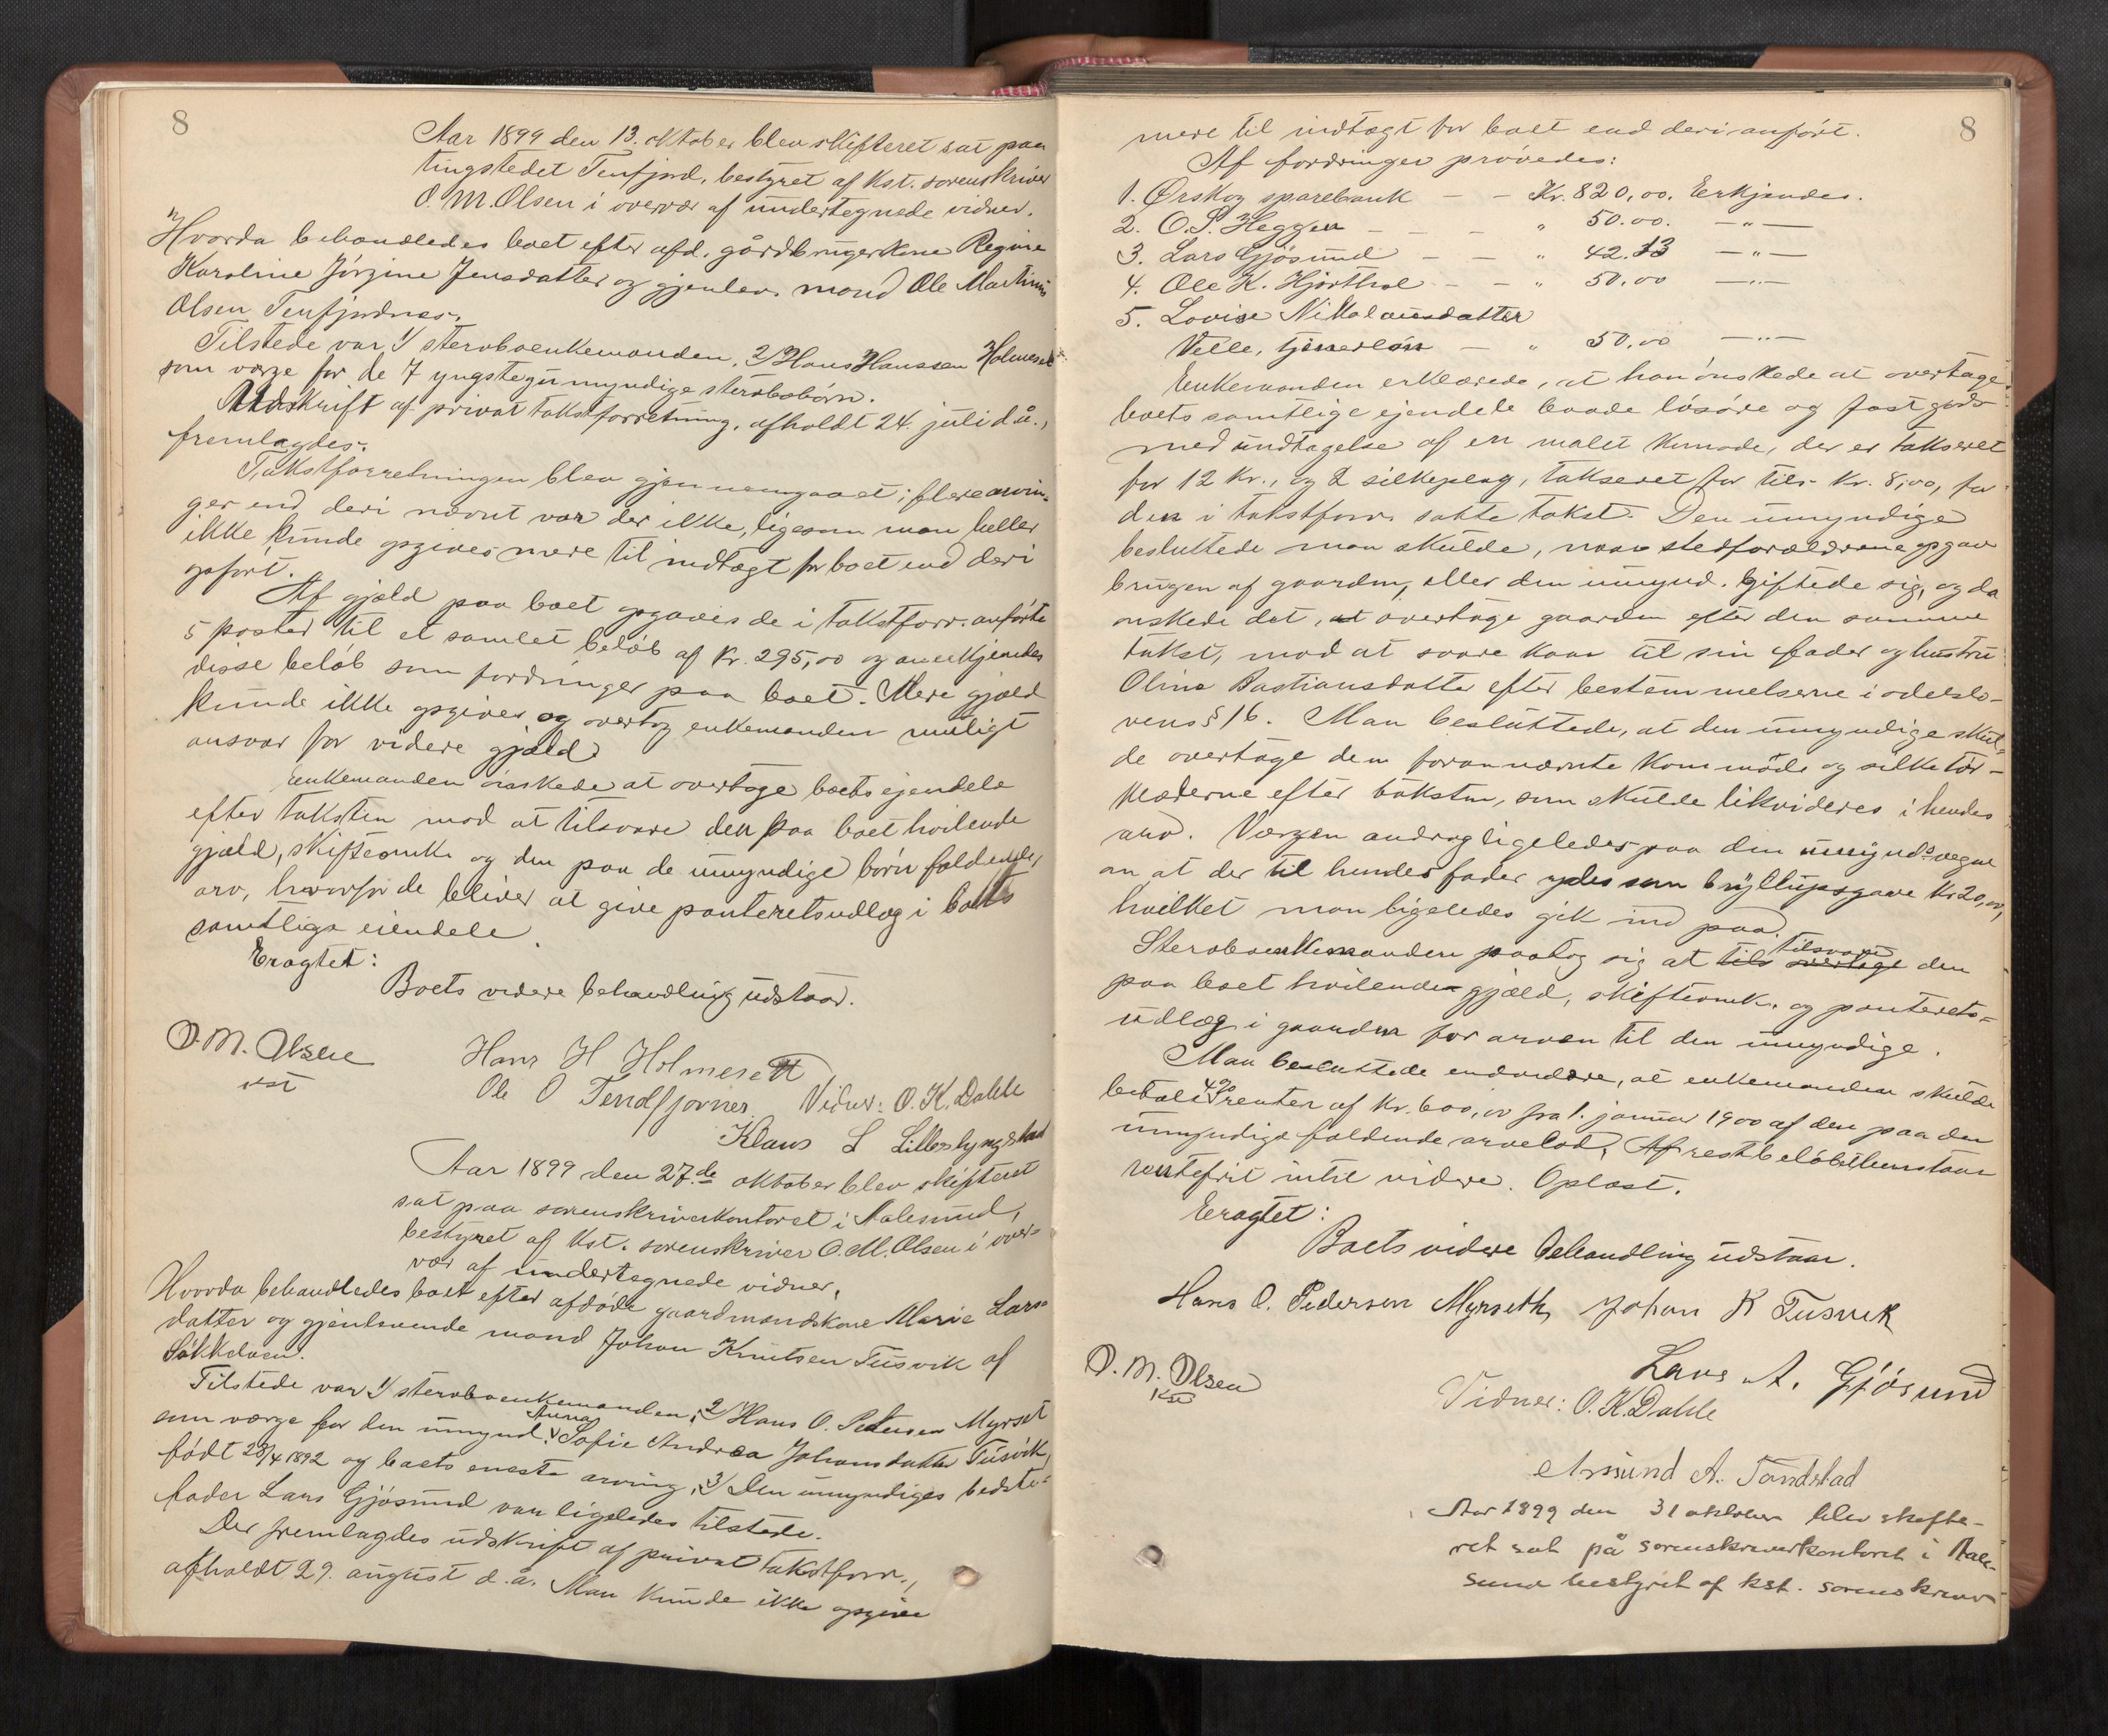 8
Aar 1899 den 13. oktober blev skifteret sat paa
tingstedet Tenfjord, bestyret af kst. sorenskriver
O. M. Olsen i overvær af undertegnede vidner.
Hvorda behandledes boet efter afd. gårdbrugerkone Regine
Karoline Jörgine Jensdatter og gjenlev. mand Ole Martinus
Olsen Tenfjordnes.
Tilstede var 1/ sterboenkemanden, 2/ Hans Hanssen Holmeset
som værge for de 7 yngste umyndige sterbobörn.
Udskrift af privat takstforretning, afholdt 24. juli d.å.,
fremlagdes.
Takstforretningen blev gjennemgaaet; flere arvin-
ger end deri nævnt var der ikke, ligesom man heller
ikke kunde opgives mere til indtægt for boet end deri
opfört.
Af gjæld paa boet opgaves de i takstforr. anförte
5 poster til et samlet belöb af kr. 295,00 og anerkjendes
disse belöb som fordringer paa boet. Mere gjæld
kunde ikke opgives og overtog enkemanden muligt
ansvar for videre gjæld.
Enkemanden önskede at overtage boets ejendele
efter taksten mod at tilsvare den paa boet hvilende
gjæld, skifteomk. og den paa de umyndige börn faldende
arv, hvorfor de bliver at give panteretsudlæg i boets
samtlige eiendele.
Eragtet:
Boets videre behandling udstaar.
O. M. Olsen
kst
Hans H Holmesett
Ole O Tendfjornes Vidner: O. K. Dahle
Klaus L Lillerslyngstad
Aar 1899 den 27.de oktober blev skifteret
sat paa sorenskriverkontoret i Aalesund,
bestyret af kst. sorenskriver O. M. Olsen i over-
vær af undertegnede vidner.
Hvorda behandledes boet efter afdöde gaardmandskone Marie Lars-
datter og gjenlevende mand Johan Knutsen Tusvik af
Sökkdoen.
Tilstede var 1/ sterboenkemanden, 2/ Hans O. Pedersen Myrset
som værge for den umynd. Anna Sofie Andrea Johansdatter Tusvik,
født 28/4 1892 og boets eneste arving, 3/ Den umyndiges bedste-
fader Lars Gjösund var ligeledes tilstede.
Der fremlagdes udskrift af privat takstforr.,
afholdt 29. august d.a. Man kunde ikke opgive
8
mere til indtægt for boet end deri anfört.
Af fordringer prövedes:
1. Ørskog sparebank – – Kr. 820,00. Erkjendes.
2. O. P. Heggen – – – " 50.00. —"—
3. Lars Gjösund – – " 42.13 —"—
4. Ole K. Hjorthol – – " 50.00 —"—
5. Lovise Nikolausdatter
Velle, tjenerlön – " 50,00 —"—
Enkemanden erklærede, at han önskede at overtage
boets samtlige ejendele baade lösöre og fast gods
med undtagelse af en malet komode, der er takseret
for 12 kr., og 2 silkeplag, takseret for tils. kr. 8,00, for
den i takstforr. satte takst. Den umyndige
besluttede man skulde, naar stedforældrene opgav
brugen af gaarden, eller den umynd. giftede sig, og da
önskede det, at overtage gaarden efter den samme
takst, mod at svare kaar til sin fader og hustru
Olina Bastiansdatter efter bestemmelserne i odelslo-
vens § 16. Man besluttede, at den umyndige skul-
de overtage den forannævnte kommöde og silketör-
klæderne efter taksten, som skulde likvideres i hendes
arv. Værgen androg ligeledes paa den umynd.s vegne
om at der til hendes fader ydes som bryllupsgave kr 20,00,
hvilket man ligeledes gik ind paa.
Sterboenkemanden paatog sig at tils overtage tilsvare den
paa boet hvilende gjæld, skifteomk. og panterets-
udlæg i gaarden for arven til den umyndige.
Man besluttede endvidere, at enkemanden skulde
betale 4% renter af kr. 600,00 fra 1. januar 1900 af den paa den
umyndige faldende arvelod. Af restbelöbet henstaar
rentefrit intil videre. Oplæst.
Eragtet:
Boets videre behandling udstaar.
Hans O. Pedersen Myrseth Johan K Tusvik
Lars A. Gjösund
O. M. Olsen
kst
Vidner: O. K. Dahle
Amund A. Tandstad
Aar 1899 den 31 oktober blev skifte-
ret sat på sorenskriverkontoret i Aale-
sund bestyret af kst. sorenskriver